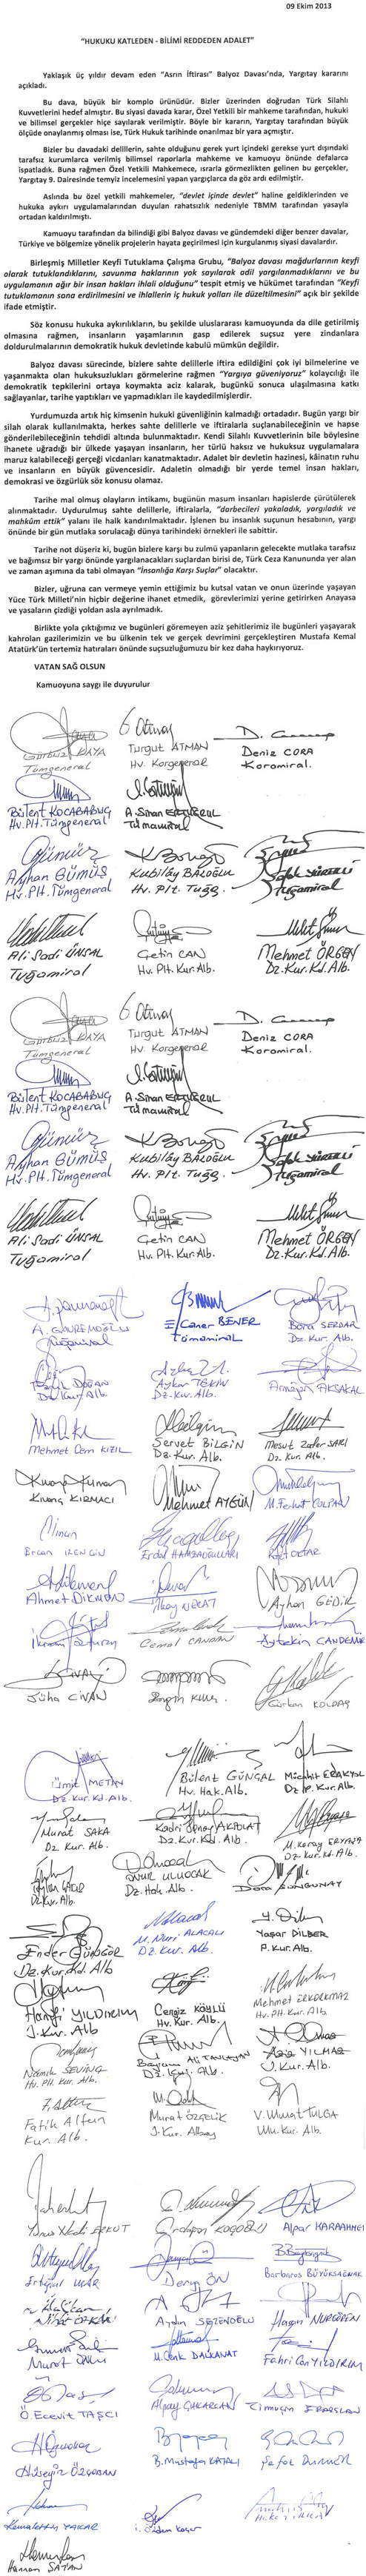 09 Ekim 2013
"HUKUKU KATLEDEN - BİLİMİ REDDEDEN ADALET"
Yaklaşık üç yıldır devam eden "Asrın İftirası" Balyoz Davası'nda, Yargıtay kararını
açıkladı.
Bu dava, büyük bir komplo ürünüdür. Bizler üzerinden doğrudan Türk Silahlı
Kuvvetlerini hedef almıştır. Bu siyasi davada karar, Özel Yetkili bir mahkeme tarafından, hukuki
ve bilimsel gerçekler hiçe sayılarak verilmiştir. Böyle bir kararın, Yargıtay tarafından büyük
ölçüde onaylanmış olması ise, Türk Hukuk tarihinde onarılmaz bir yara açmıştır.
Bizler bu davadaki delillerin, sahte olduğunu gerek yurt içindeki gerekse yurt dışındaki
tarafsız kurumlarca verilmiş bilimsel raporlarla mahkeme ve kamuoyu önünde defalarca
ispatladık. Buna rağmen Özel Yetkili Mahkemece, ısrarla görmezlikten gelinen bu gerçekler,
Yargıtay 9. Dairesinde temyiz incelemesini yapan yargıçlarca da göz ardı edilmiştir.
Aslında bu özel yetkili mahkemeler, "devlet içinde devlet" haline geldiklerinden ve
hukuka aykırı uygulamalarından duyulan rahatsızlık nedeniyle TBMM tarafından yasayla
ortadan kaldırılmıştı.
Kamuoyu tarafından da bilindiği gibi Balyoz davası ve gündemdeki diğer benzer davalar,
Türkiye ve bölgemize yönelik projelerin hayata geçirilmesi için kurgulanmış siyasi davalardır.
Birleşmiş Milletler Keyfi Tutuklama Çalışma Grubu, "Balyoz davası mağdurlarının keyfi
olarak tutuklandıklarını, savunma haklarının yok sayılarak adil yargılanmadıklarını ve bu
uygulamanın ağır bir insan hakları ihlali olduğunu" tespit etmiş ve hükümet tarafından "Keyfi
tutuklamanın sona erdirilmesini ve ihlallerin iç hukuk yolları ile düzeltilmesini" açık bir şekilde
ifade etmiştir.
Söz konusu hukuka aykırılıkların, bu şekilde uluslararası kamuoyunda da dile getirilmiş
olmasına rağmen, insanların yaşamlarının gasp edilerek suçsuz yere zindanlara
doldurulmalarının demokratik hukuk devletinde kabulü mümkün değildir.
Balyoz davası sürecinde, bizlere sahte delillerle iftira edildiğini çok iyi bilmelerine ve
yaşanmakta olan hukuksuzlukları görmelerine rağmen "Yargıya güveniyoruz" kolaycılığı ile
demokratik tepkilerini ortaya koymakta aciz kalarak, bugünkü sonuca ulaşılmasına katkı
sağlayanlar, tarihe yaptıkları ve yapmadıkları ile kaydedilmişlerdir.
Yurdumuzda artık hiç kimsenin hukuki güvenliğinin kalmadığı ortadadır. Bugün yargı bir
silah olarak kullanılmakta, herkes sahte delillerle ve iftiralarla suçlanabileceğinin ve hapse
gönderilebileceğinin tehdidi altında bulunmaktadır. Kendi Silahlı Kuvvetlerinin bile böylesine
ihanete uğradığı bir ülkede yaşayan insanların, her türlü haksız ve hukuksuz uygulamalara
maruz kalabileceği gerçeği vicdanları kanatmaktadır. Adalet bir devletin hazinesi, kâinatın ruhu
ve insanların en büyük güvencesidir. Adaletin olmadığı bir yerde temel insan hakları,
demokrasi ve özgürlük söz konusu olamaz.
Tarihe mal olmuş olayların intikamı, bugünün masum insanları hapislerde çürütülerek
alınmaktadır. Uydurulmuş sahte delillerle, iftiralarla, "darbecileri yakaladık, yargıladık ve
mahkûm ettik" yalanı ile halk kandırılmaktadır. İşlenen bu insanlık suçunun hesabının, yargı
önünde bir gün mutlaka sorulacağı dünya tarihindeki örnekleri ile sabittir.
Tarihe not düşeriz ki, bugün bizlere karşı bu zulmü yapanların gelecekte mutlaka tarafsız
ve bağımsız bir yargı önünde yargılanacakları suçlardan birisi de, Türk Ceza Kanununda yer alan
ve zaman aşımına da tabi olmayan "İnsanlığa Karşı Suçlar" olacaktır.
Bizler, uğruna can vermeye yemin ettiğimiz bu kutsal vatan ve onun üzerinde yaşayan
Yüce Türk Milleti'nin hiçbir değerine ihanet etmedik, görevlerimizi yerine getirirken Anayasa
ve yasaların çizdiği yoldan asla ayrılmadık.
Birlikte yola çıktığımız ve bugünleri göremeyen aziz şehitlerimiz ile bugünleri yaşayarak
kahrolan gazilerimizin ve bu ülkenin tek ve gerçek devrimini gerçekleştiren Mustafa Kemal
Atatürk'ün tertemiz hatıraları önünde suçsuzluğumuzu bir kez daha haykırıyoruz.
VATAN SAĞ OLSUN
Kamuoyuna saygı ile duyurulur
Gürbüz KAYA Turgut ATMAN Deniz CORA
Tümgeneral Hv. Korgeneral Koramiral.
Bülent KOCABABUÇ A. Sinan ERTUĞRUL
Hv.Plt.Tümgeneral Tümamiral
Ayhan GÜMÜŞ Kubilay BALOĞLU Şafak YÜREKLİ
Hv. Plt. Tümgeneral Hv. Plt. Tuğg. Tuğamiral
Ali Sadi ÜNSAL Çetin CAN Mehmet ÖRGEN
Tuğamiral Hv. Plt. Kur. Alb. Dz. Kur. Kd. Alb.
Gürbüz KAYA Turgut ATMAN Deniz CORA
Tümgeneral Hv. Korgeneral Koramiral.
Bülent KOCABABUÇ A. Sinan ERTUĞRUL
Hv.Plt.Tümgeneral Tümamiral
Ayhan GÜMÜŞ Kubilay BALOĞLU Şafak YÜREKLİ
Hv. Plt. Tümgeneral Hv. Plt. Tuğg. Tuğamiral
Ali Sadi ÜNSAL Çetin CAN Mehmet ÖRGEN
Tuğamiral Hv. Plt. Kur. Alb. Dz. Kur. Kd. Alb.
Caner BENER Bora SERDAR
Tuğamiral Tümamiral Dz. Kur. Alb.
DOĞAN Aykar TEKİN Armağan AKSAKAL
Dz. Kur. Alb. Dz. Kur. Alb.
Mehmet Cem KIZIL Servet BİLGİN Mesut Zafer SARI
Dz. Kur. Alb. Dz. Kur. Alb.
Kıvanç KIRMACI Mehmet AYGÜN M. Ferhat ÇOLPAN
Ercan İRENCİN Erdal HAMZAOĞULLARI
Ahmet DİKMEN İlkay NERAT Ayhan GEDİK
Cemal CANDAN Aytekin CANDEMİR
Süha CİVAN Gürkan KOLDAŞ
Ümit METİN Bülent GÜNÇAL Mücahit ERAKYOL
Dz. Kur. Kd. Alb. Hv. Hak. Alb. Dz. P. Kur. Alb.
Murat SAKA Kadri Sonay AKPOLAT M. Koray ERYAŞA
Dz. Kur. Alb. Dz. Kur. Kd. Alb. Dz. Kur. Kd. Alb.
Onur ULUOCAK Dora SUNGUNAY
Dz. Kur. Alb. Dz. Hak. Alb.
Ender GÜNGÖR M. Nuri ALACALI Yaşar DİLBER
Dz. Kur. Kd. Alb. Dz. Kur. Alb. P. Kur. Alb.
Hanifi YILDIRIM Cengiz KÖYLÜ Mehmet ERKORKMAZ
J. Kur. Alb Hv. Kur. Alb. Hv. Plt. Kur. Alb
Namık SEVİNÇ Bayram Ali TAVLAYAN Aziz YILMAZ
Hv. Plt. Kur. Alb. Dz. Kur. Alb. J. Kur. Alb.
Fatih Altun Murat ÖZÇELİK V. Murat TULGA
Kur. Alb. J. Kur. Albay Mu. Kur. Alb.
Erdinç Alpar KARAAHMET
Ertuğrul UÇAR Derya ÖN Barbaros BÜYÜKSAĞNAK
Aydın SEZENOĞLU Hasan NURGÖREN
Murat ÜNLÜ M. Cenk DALKANAT Fahri Can YILDIRIM
Ö. Ecevit TAŞCI Alpay ÇAKARCAN Timuçin ERARSLAN
Hüseyin ÖZÇOBAN B. Mustafa KATALI Şafak DURUER
Kemalettin YAKAR
Hannan ŞAYAN